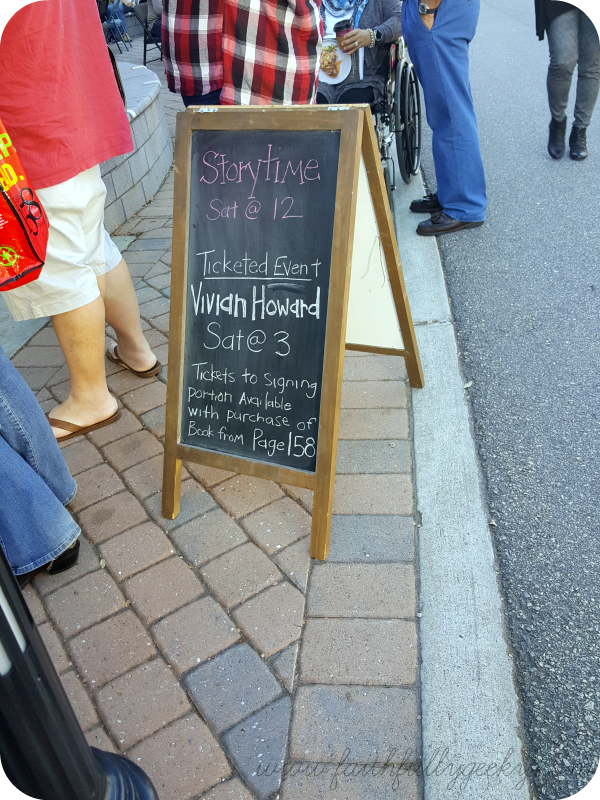 Storytime
Sat @ 12
Ticketed Event
Vivian Howard
Sat@ 3
Tickets to Signing
portion Available
with purchase of
Book from Page 158